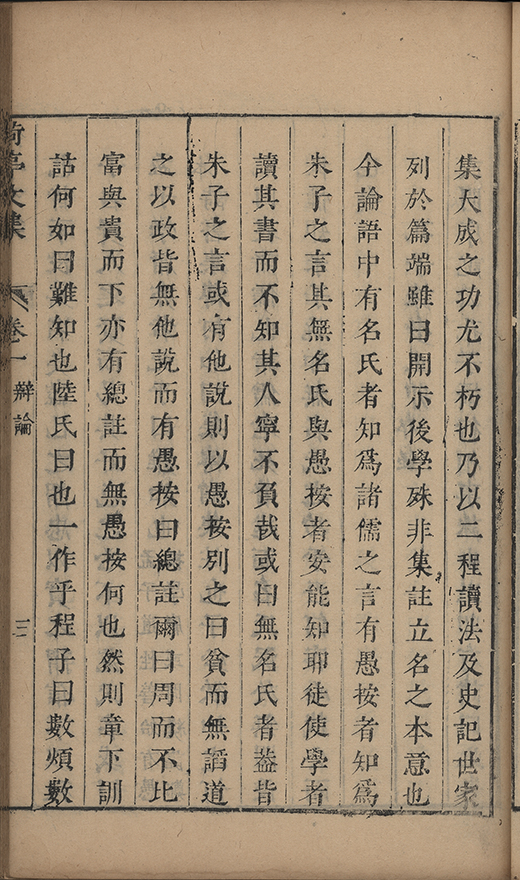 集大成之功尤不朽也乃以二程讀法及史記世家
列於篇端雖曰開示後學殊非集註立名之本意也
今論語中有名氏者知爲諸儒之言有愚按者知爲
朱子之言其無名氏與愚按者安能知耶徒使學者
讀其書而不知其人寧不負哉或曰無名氏者葢皆
朱子之言或有他說則以愚按別之曰貧而無謟道
之以政皆無他說而有愚按曰總註爾曰周而不比
富與貴而下亦有總註而無愚按何也然則章下訓
詁何如曰難知也陸氏曰也一作乎程子曰數煩數
亭文集
卷一
辯論
三